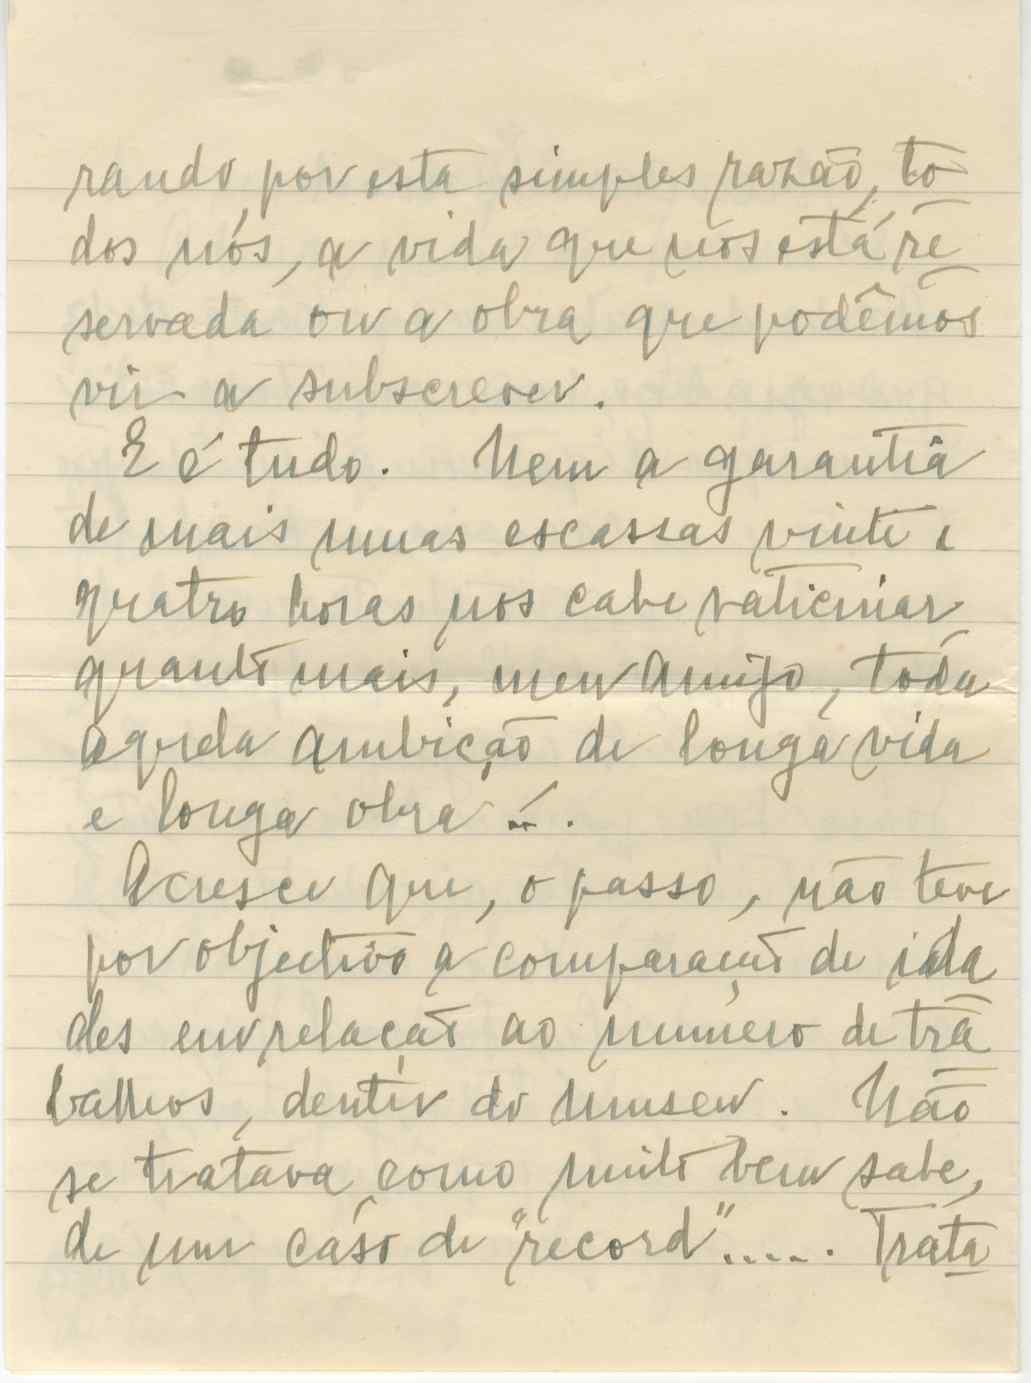 rando, por esta simples razão, to
dos nós, a vida que nos está re
servada ou a obra que podêmos
vir a subscrever.
E é tudo. Nem a garantia
de mais umas escassas vinte e
quatro horas nos cabe vaticinar
quanto mais, meu Amigo, toda
aquela ambição de longa vida
e longa obra!...
Acresce que, o passo, não teve
por objectivo a comparação de ida
des em relação ao número de tra
balhos, dentro do Museu. Não
se tratava, como muito bem sabe,
de um caso de "record"..... Trata